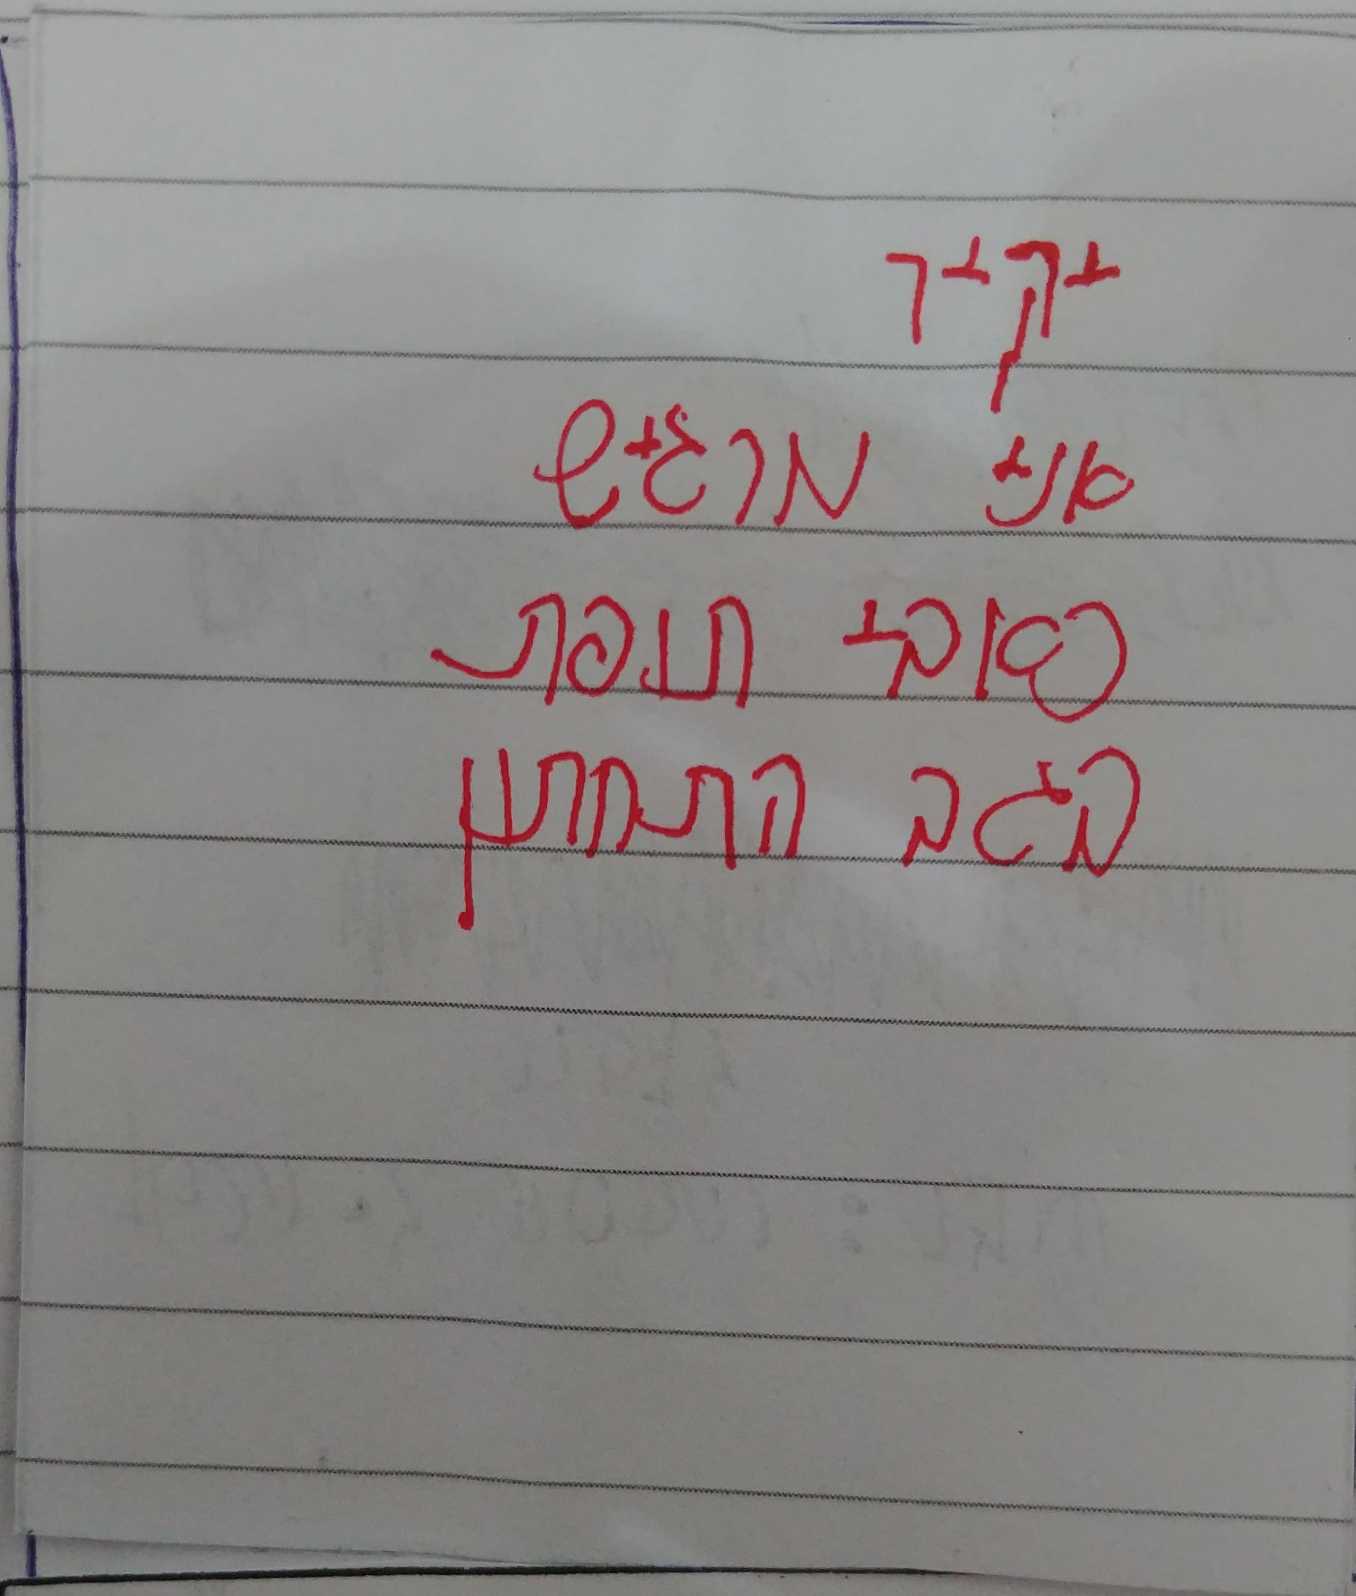 יקיר
אני מרגיש
כאבי תופת
בגב התחתון